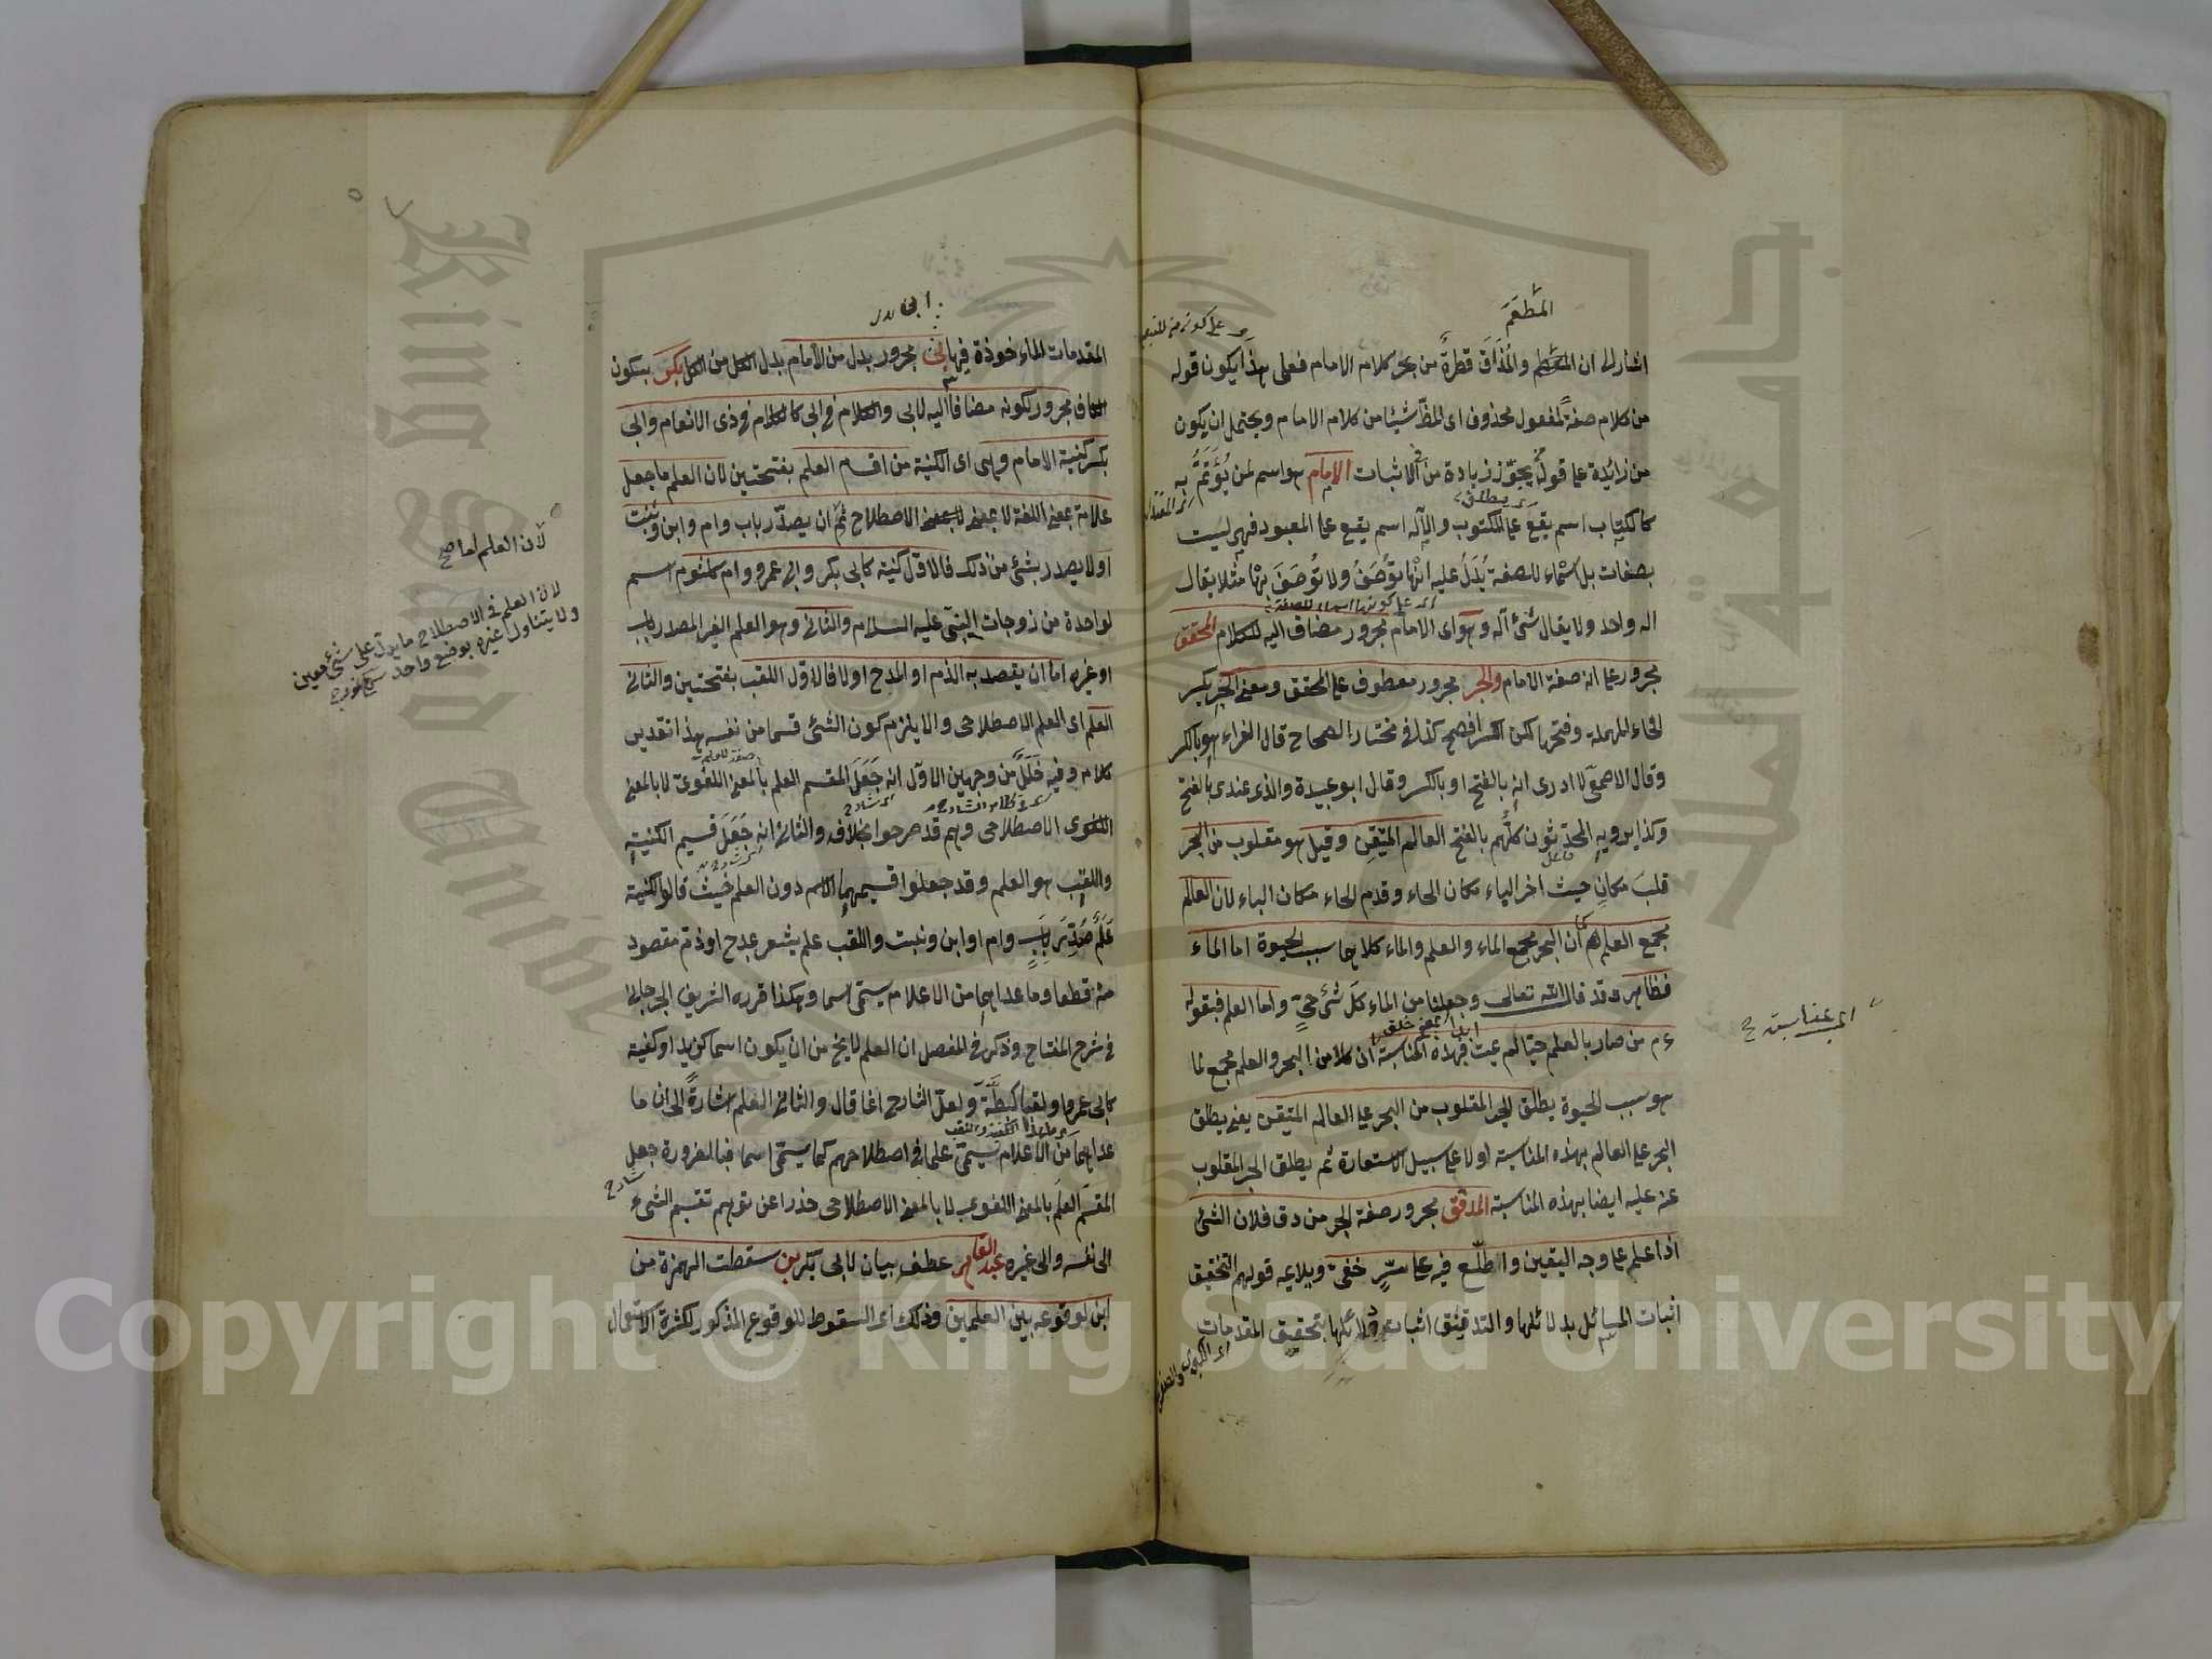 المطعم
اشار الى ان المطعم والمذاق قطرة من بحر كلام الامام فعلى هذا يكون قوله
من كلام صفة لمفعول محذوف اى شيئا من كلام الامام ويحتمل ان يكون
من زائدة على قول يجوز زيادة من فى الاثبات الامام هو اسم لمن يؤتم به
كالكتاب اسم يقع على المكتوب والاله اسم يقع على المعبود فهى ليست
بصفات بل اسماء للصفة يدل عليه انها توصف ولا توصف بها مثلا يقال
اله واحد ولا يقال شئ اله وهو اى الامام مجرور مضاف اليه للكلام المحقق
مجرور على انه صفة الامام والحبر مجرور معطوف على المحقق ومعنى الحبر بكسر
الحاء المهملة وفتحها لكن الكسر افصح كذا فى مختار الصحاح قال الفراء هو بالكسر
وقال الاصمعى لا ادرى انه بالفتح او بالكسر وقال ابو عبيدة والذى عندى بالفتح
وكذا يرويه المحدثون كلهم بالفتح العالم المتقن وقيل هو مقلوب من البحر
قلب مكان حيث اخر الباء مكان الحاء وقدم الحاء مكان الباء لان العالم
مجمع العلم كما ان البحر مجمع الماء والعلم والماء كلاهما سبب الحيوة اما الماء
فظاهر وقد قال الله تعالى وجعلنا من الماء كل شئ حى واما العلم فبقوله
ءم من صار بالعلم حيا لم يمت ابدا فبهذه المناسبة ان كلا من البحر والعلم مجمع لما
هو سبب الحيوة يطلق الحبر المقلوب من البحر على العالم المتقن يعنى يطلق
البحر على العالم بهذه المناسبة اولا على سبيل الاستعارة ثم يطلق الحبر المقلوب
عنه عليه ايضا بهذه المناسبة المدقق مجرور صفة الحبر من دق فلان الشئ
اذا علم على وجه اليقين واطلع فيه على سر خفى ويلايمه قولهم التحقيق
اثبات المسائل بدلائلها والتدقيق اثبات دلائلها بتحقيق المقدمات
اى بمناسبة
المقدمات الماءخوذة فيها ابى مجرور بدل من الامام بدل الكل من الكل بكر بسكون
الكاف مجرور لكونه مضافا اليه لابى والكلام فى ابى كالكلام فى ذى الانعام وابى
بكر كنية الامام وهى اى الكنية من اقسام العلم بفتحتين لان العلم ما جعل
علامة بمعنى اللغة لا بمعنى الاصطلاح ثم ان يصدر باب وام وابن وبنت
اولا يصدر بشئ من ذلك فالاول كنية كابى بكر وابى عمرو وام كلثوم اسم
لواحدة من زوجات النبى عليه السلام والثانى وهو العلم الغير المصدر باب
او غيره اما ان يقصد به الذم او المدح اولا فالاول اللقب بفتحتين والثانى
العلم اى العلم الاصطلاحى والا يلزم كون الشئ قسما من نفسه هذا تقدير
كلامه وفيه خلل من وجهين الاول انه جعل المقسم العلم بالمعنى اللغوى لا بالمعنى
اللغوى الاصطلاحى وهم قد صرحوا بخلافه والثانى انه جعل قسيم الكنية
واللقب هو العلم وقد جعلوا قسيمهما الاسم دون العلم حيث قالوا الكنية
علم صدر باب وام او ابن وبنت واللقب علم يشعر بمدح او ذم مقصود
منه قطعا وما عداهما من الاعلام يسمى اسما وهكذا قرره الشريف الجرجانى
فى شرح المفتاح وذكر فى المفصل ان العلم لا يخ من ان يكون اسما كزيد او كنية
كابى عمرو او لقبا كبطة ولعل الشارح انما قال والثانى العلم اشارة الى ان ما
عداهما من الاعلام يسمى علما فى اصطلاحهم كما يسمى اسما فبالضرورة جعل
المقسم العلم بالمعنى اللغوى لا بالمعنى الاصطلاحى حذرا عن توهم تقسيم الشىء
الى نفسه والى غيره عبد القاهر عطف بيان لابى بكر بن سقطت الهمزة من
ابن لوقوعه بين العلمين وذلك اى السقوط للوقوع المذكور لكثرة الاستعمال
لان العلم اما صح
لان العلم فى الاصطلاح ما يدل على شئ معين
ولا يتناول غيره بوضع واحد
Copyright © King Saud University